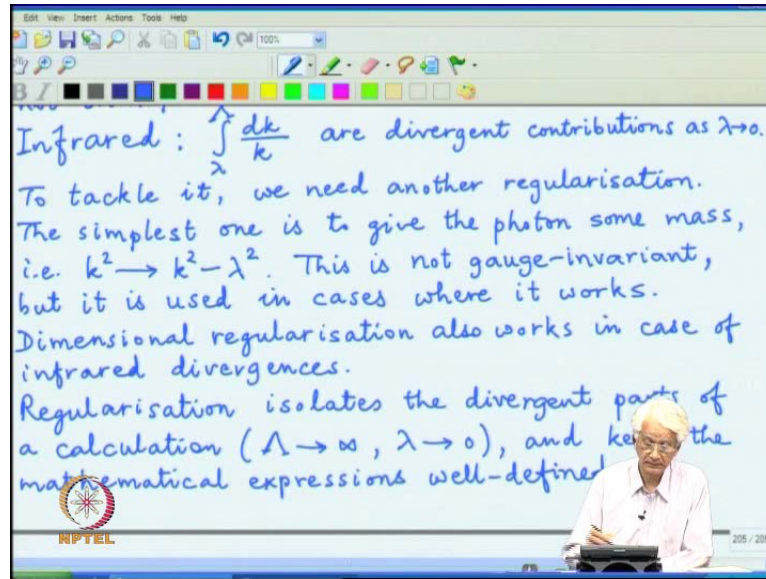 Edit View Insert Actions Tools Help
100%
Infrared : ∫_λ^Λ dk/k are divergent contributions as λ→0.
To tackle it, we need another regularisation.
The simplest one is to give the photon some mass,
i.e. k² → k² - λ². This is not gauge-invariant,
but it is used in cases where it works.
Dimensional regularisation also works in case of
infrared divergences.
Regularisation isolates the divergent parts of
a calculation (Λ → ∞, λ → 0), and the
mathematical expressions well-defined
NPTEL